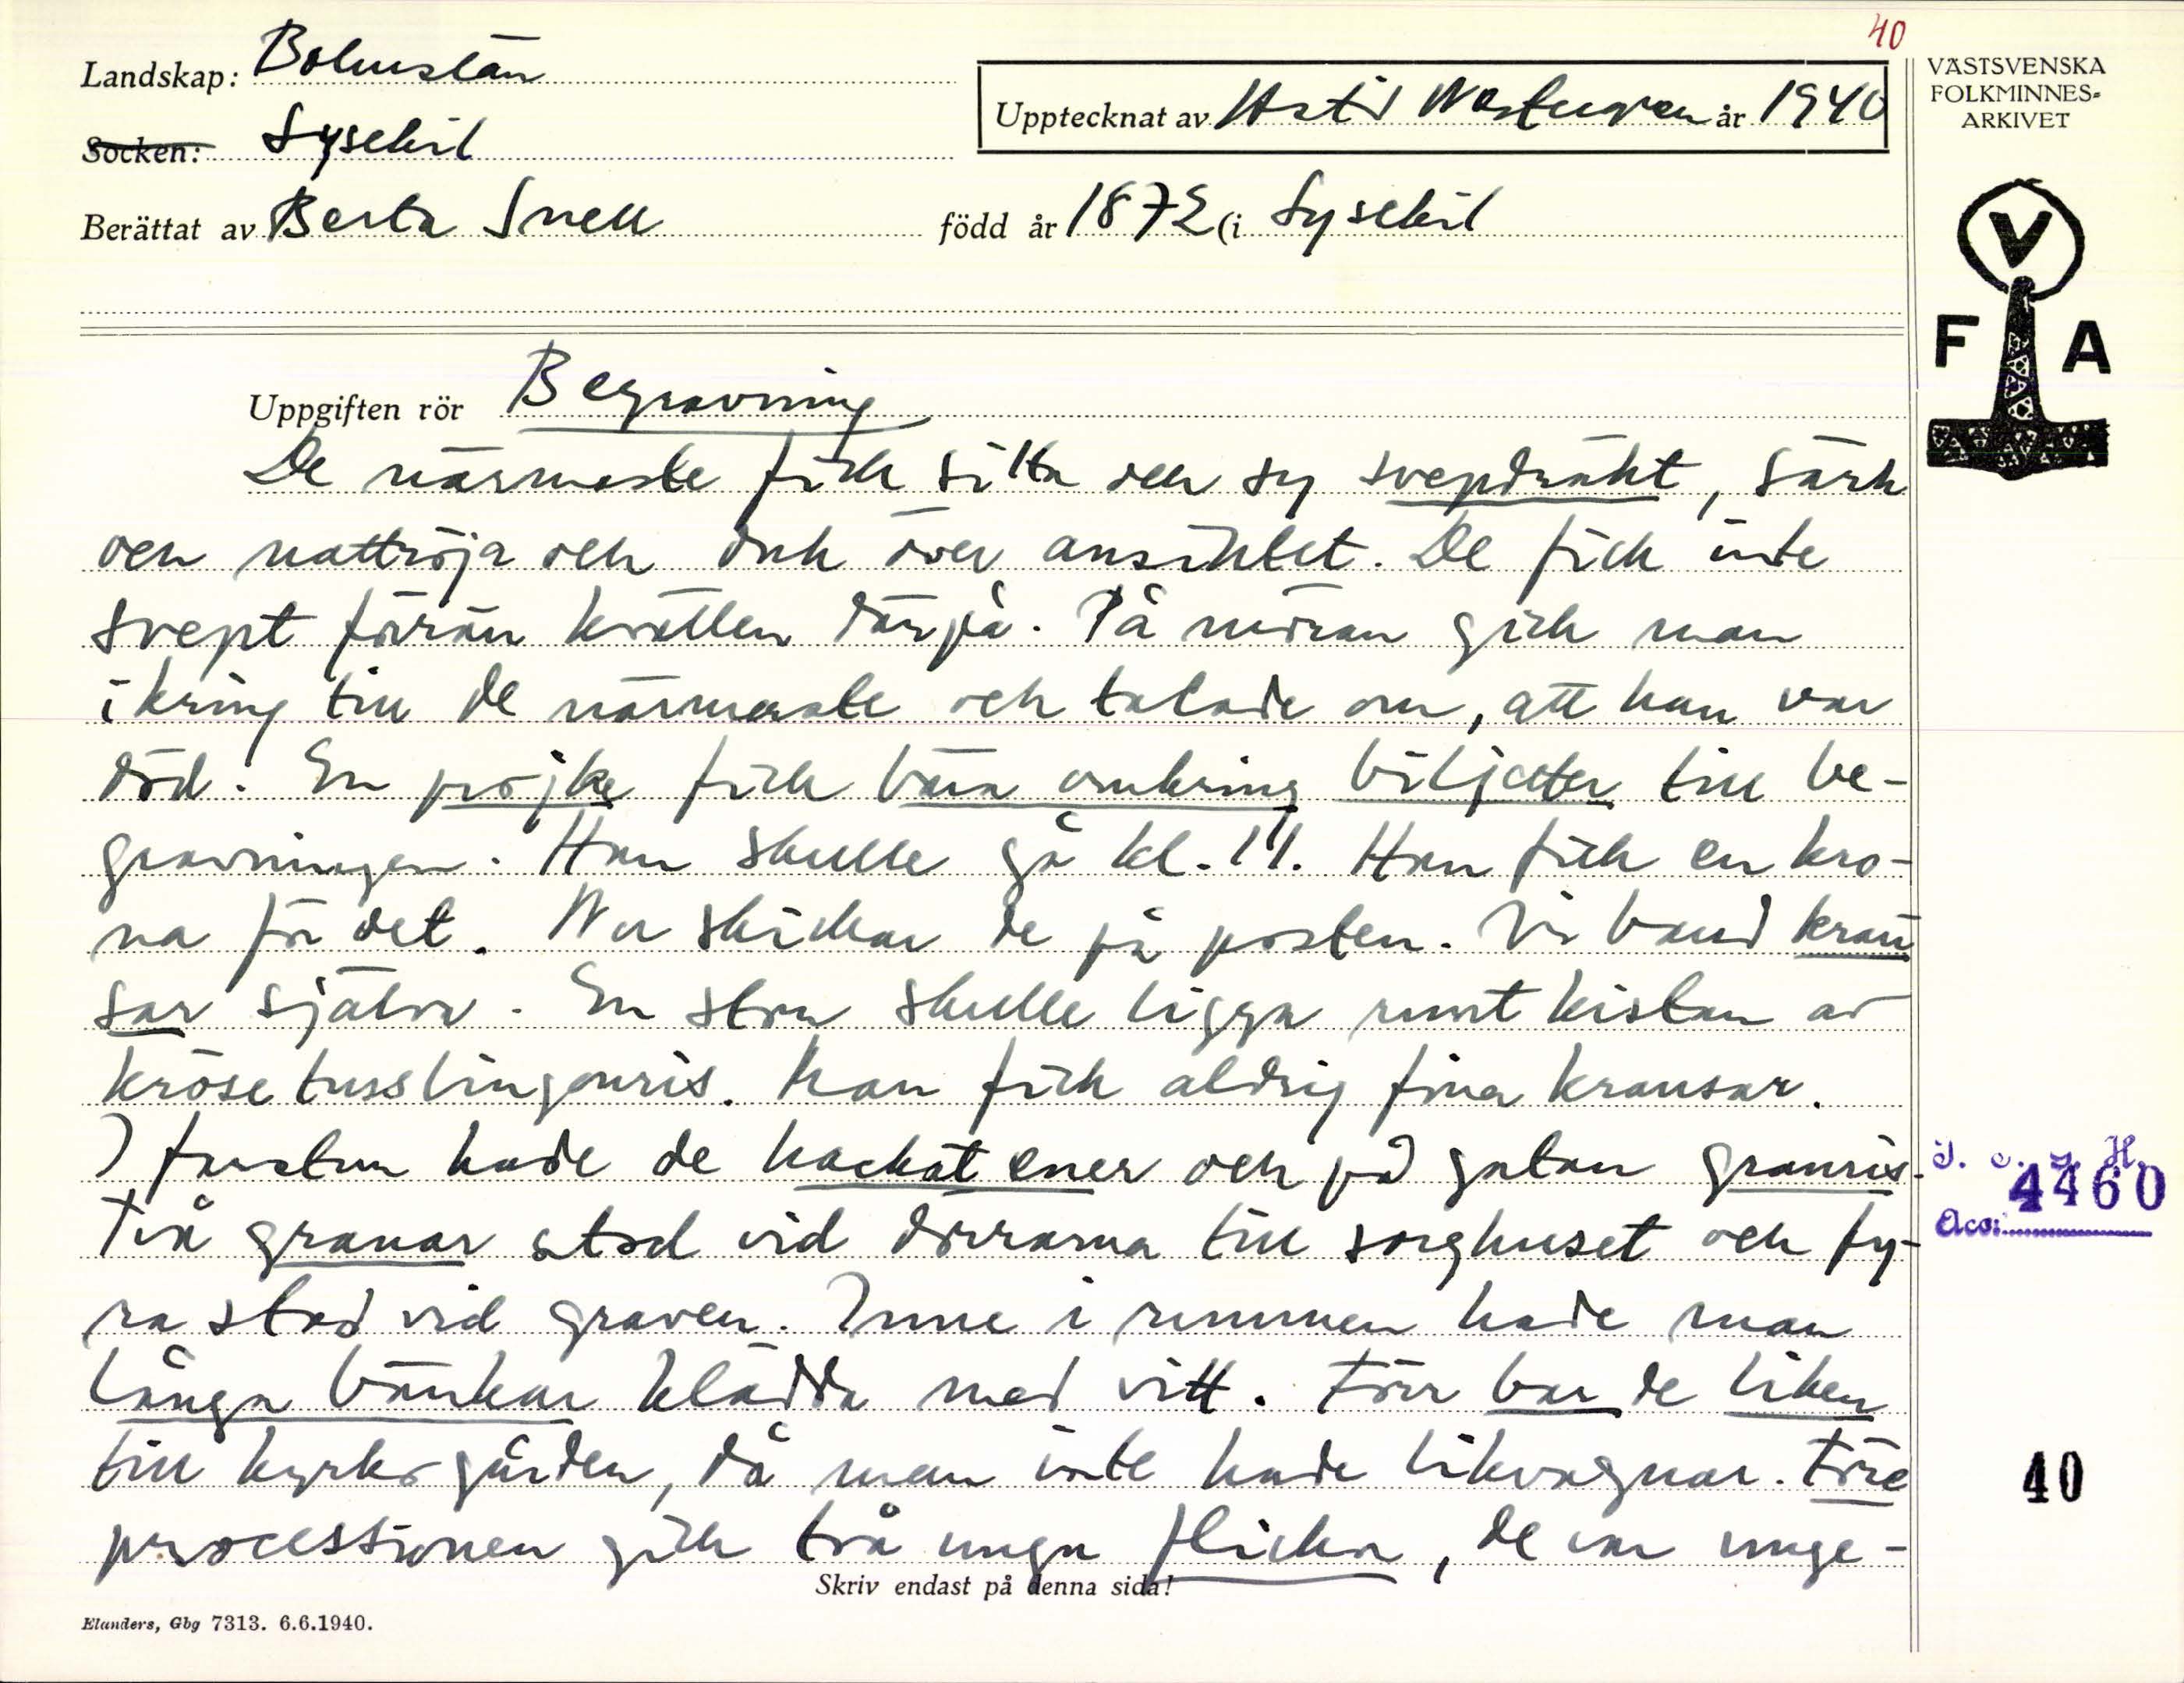 40
Landskap: Bohuslän
Upptecknat av Astrid Westergren år 1940
VÄSTSVENSKA
FOLKMINNES-
ARKIVET
Socken: Lysekil
Berättat av Berta Snell född år 1872 (i Lysekil
V
F A
Uppgiften rör Begravning
De närmaste fick sitta och sy svepdräkt, särk
och nattröja och duk över ansiktet. De fick inte
svept förrän kvällen därpå. På möran gick man
ikring till de närmaste och talade om, att han var
död. En pojke fick bära omkring biljetter till be-
gravningen. Han skulle gå kl. 11. Han fick en kro-
na för det. Nu skickar de på posten. Vi band kran
sar själva. En stor skulle ligga runt kistan av
krösetusslingonris. Man fick aldrig fina kransar.
I farstun hade de hackat ener och på gatan granris.
Två granar stod vid dörrarna till sorghuset och fy-
ra stod vid graven. Inne i rummen hade man
långa bänkar klädda med vitt. Förr bar de liken
till kyrkogården, då man inte hade likvagnar. Före
processionen gick två unga flickor, de var unge-
4460
Acc:
40
Skriv endast på denna sida!
Elanders, Gbg 7313. 6.6.1940.